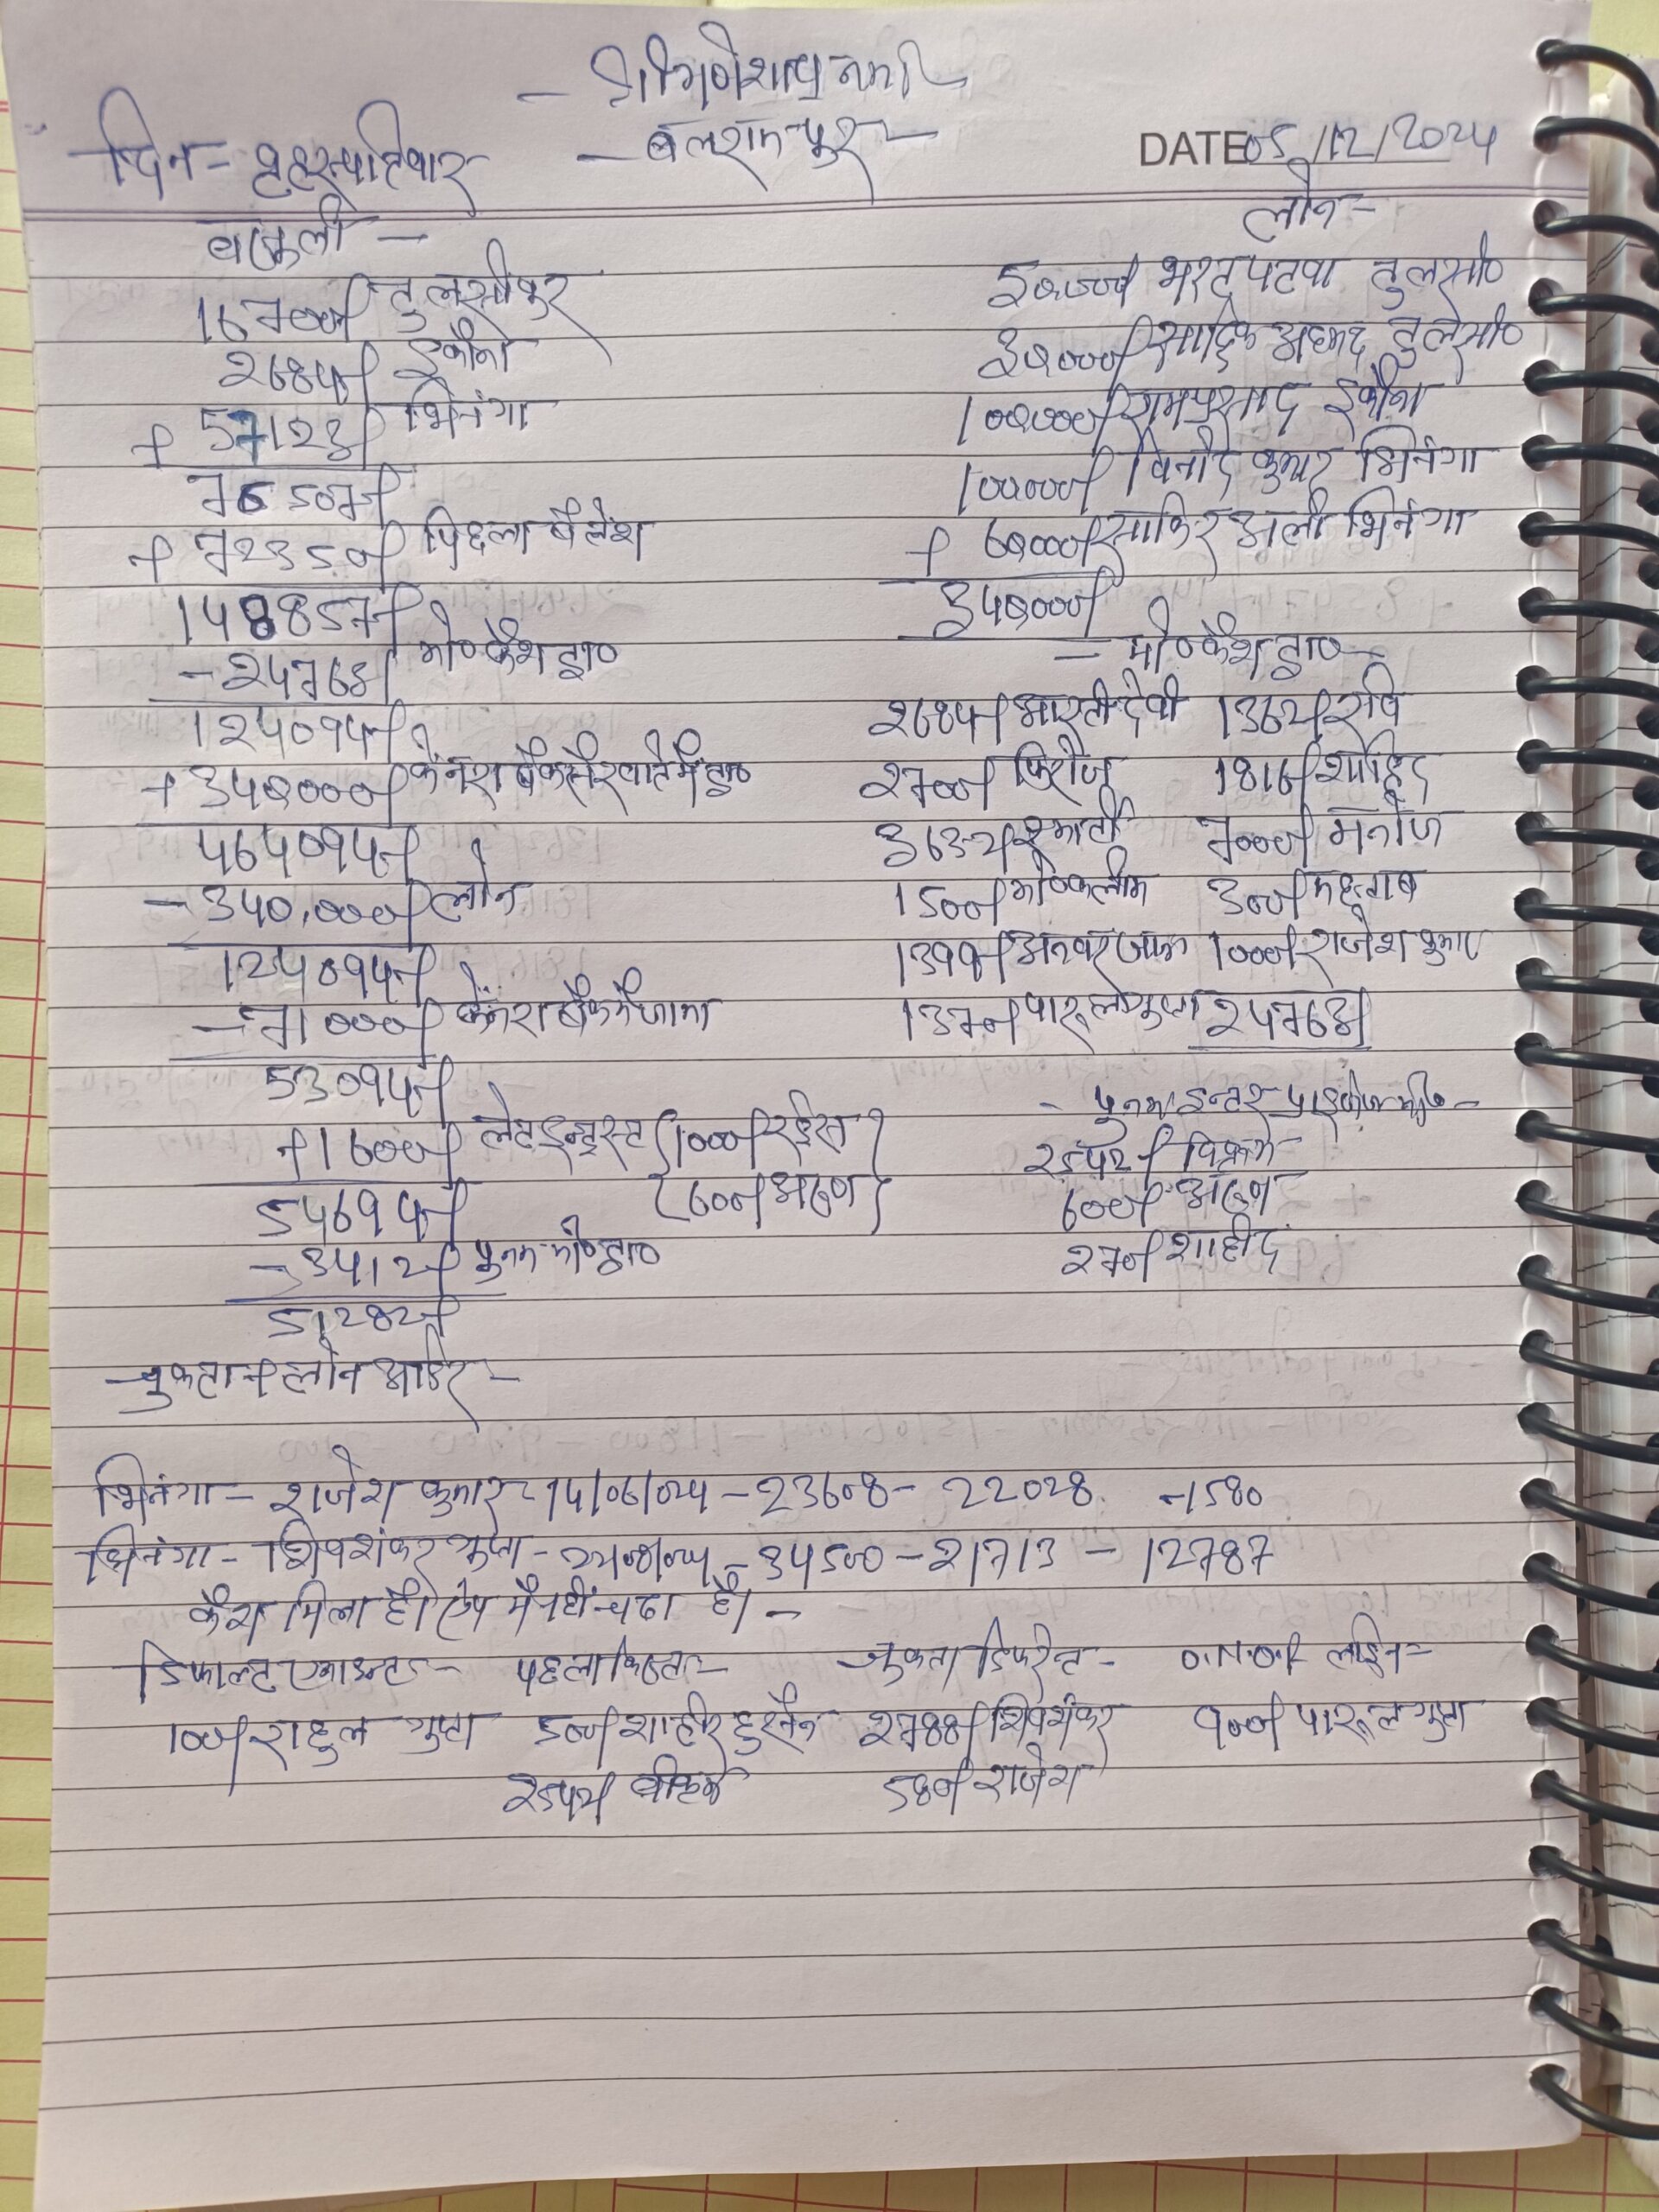 - श्री गणेशाय नमः -
दिन = बृहस्पतिवार
- बलरामपुर -
DATE 05/12/2024
वसूली -
16700/ तुलसीपुर
2684/ इकौना
+ 57123/ भिनंगा
76507/
+ 72350/ पिछला बैलेंश
148857/
- 24763/ मो० कैश ट्रा०
124094/
+ 340000/ केनरा बैंक से खाते में ट्रा०
464094/
- 340,000/ लोन
124094/
- 71000/ केनरा बैंक में जामा
53094/
+ 1600/ लेट इन्ट्रस्ट (1000/ रईस)
(600/ अरुण)
54694/
- 3412/ पुनम मो० ट्रा०
51282/
लोन -
50000/ भरत पटवा तुलसी०
30000/ सादिक अहमद तुलसी०
100000/ रामप्रसाद इकौना
100000/ विनोद कुमार भिनंगा
+ 60000/ साकिर अली भिनंगा
340000/
- मो० कैश ट्रा० -
2684/ आरती देवी 1362/ रवि
2700/ फिरोज 1816/ शाहिद
3632/ 7000/ मनोज
1500/ मो० कलीम 300/ महताब
1399/ अनवर 1000/ राजेश कुमार
1370/ पारूल गुप्ता 24763/
- पुनम इन्टर प्राइजेज -
2542/ विक्रम
600/ अरुण
270/ शाहीद
चुकता न लोन आडर -
भिनंगा - राजेश कुमार - 14/06/024 - 23608 - 22028 - 1580
भिनंगा - शिवशंकर गुप्ता - 34500 - 21713 - 12787
कैश मिला है। ऐप में नहीं चढा है। -
डिफाल्ट एमाउन्ट - पहला किस्त - चुकता डिफरेन्ट - O.N.O.R लाईन -
100/ राहुल गुप्ता 500/ शाहीर हुसैन 2788/ शिवशंकर 900/ पारूल गुप्ता
2542/ 580/ राजेश